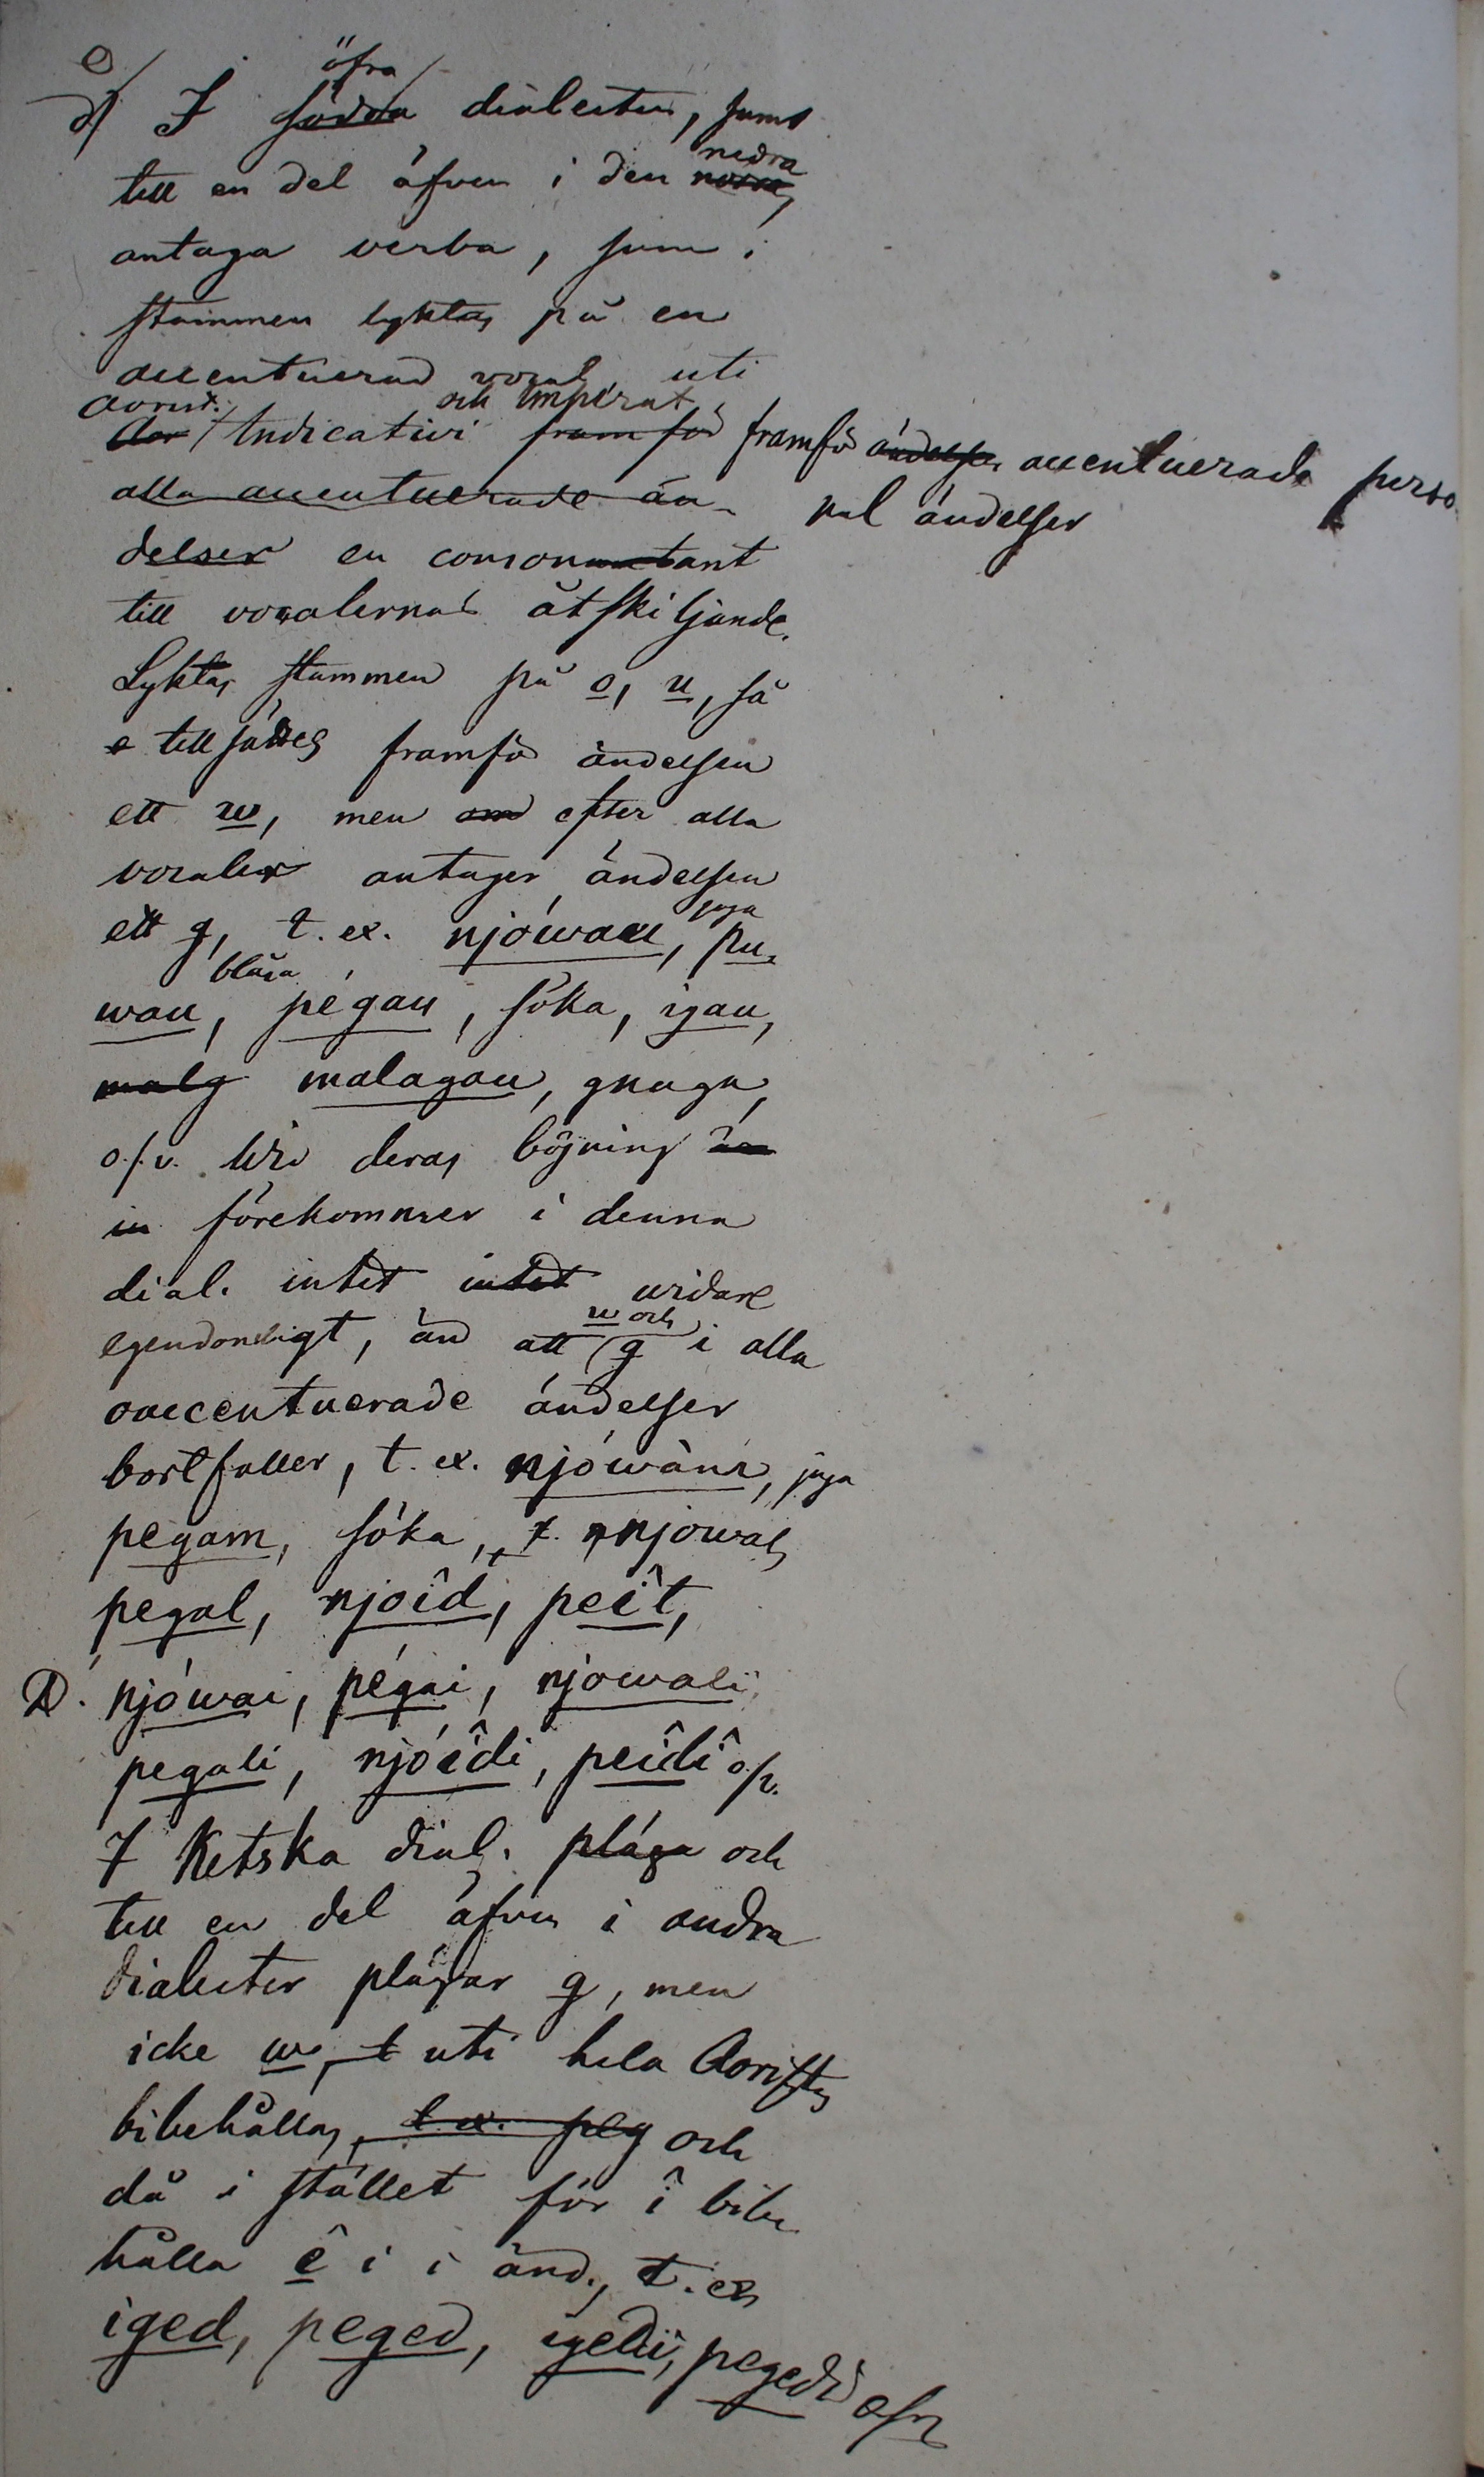 e) öfra
d) I södra dialecten, samt
till en del äfven i den norra nedra,
antaga verba, som i
stammen lyktas på en
accentuerad vocal, uti
Aorist. och Imperat.
Aor Indicativi framför framför ändelser accentuerade perso
alla accentuerade än- nal ändelser
delser en consonantant
till vocalernas åtskiljande.
Lyktas stammen på o, u, så
e tillsättes framför ändelsen
ett w, men om efter alla
vocaler antager ändelsen
ett g, t. ex. njówau, juga pu-
wau, blåsa pégau, söka, igau,
malg malagau, gnuga,
o.s.v. Wid deras böjning än
in förekommer i denna
dial. intet intet widare
egendomligt, än att w och g i alla
oaccentuerade ändelser
bortfaller, t. ex. njówàm, juga
pegam, söka, t. njowal,
pegal, njoîd, peît,
D. njówai, pégai, njowali,
pegali, njóîdi, peîdî o.s.v.
I Ketska dial. pläga och
till en del äfven i andra
dialecter plägar g, men
icke w, t uti hela Aoristen
bibehållas, t. ex. peg och
då i stället för î bibe
hålla ê i i änd., t. ex.
iged, peged, igedii, pegedi o.s.v.